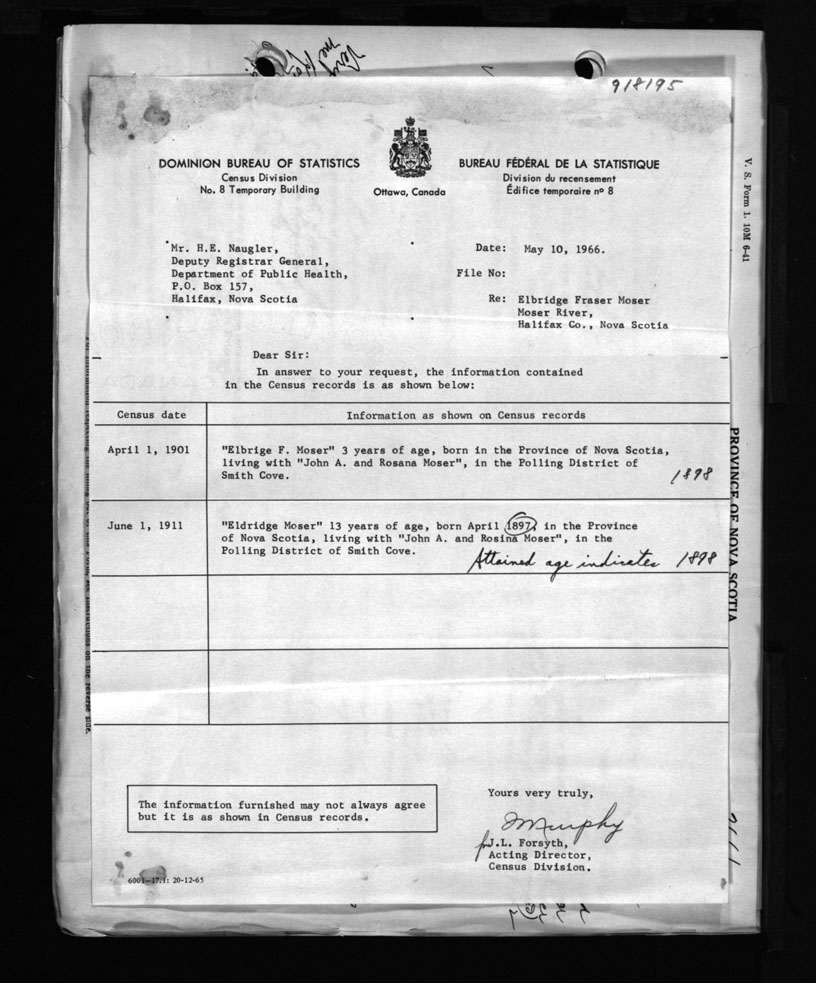 918195
DOMINION BUREAU OF STATISTICS
Census Division
No. 8 Temporary Building
Ottawa, Canada
BUREAU FÉDÉRAL DE LA STATISTIQUE
Division du recensement
Édifice temporaire nº 8
V. S. Form 1. 10M 6-41
Mr. H.E. Naugler,
Deputy Registrar General,
Department of Public Health,
P.O. Box 157,
Halifax, Nova Scotia
Date: May 10, 1966.
File No:
Re: Elbridge Fraser Moser
Moser River,
Halifax Co., Nova Scotia
Dear Sir:
In answer to your request, the information contained
in the Census records is as shown below:
Census date Information as shown on Census records
April 1, 1901 "Elbrige F. Moser" 3 years of age, born in the Province of Nova Scotia,
living with "John A. and Rosana Moser", in the Polling District of
Smith Cove.
1898
June 1, 1911 "Eldridge Moser" 13 years of age, born April 1897, in the Province
of Nova Scotia, living with "John A. and Rosina Moser", in the
Polling District of Smith Cove.
Attained age indicates 1898
PROVINCE OF NOVA SCOTIA
on the reverse side.
The information furnished may not always agree
but it is as shown in Census records.
Yours very truly,
JMurphy
for J.L. Forsyth,
Acting Director,
Census Division.
6001-17.1: 20-12-65